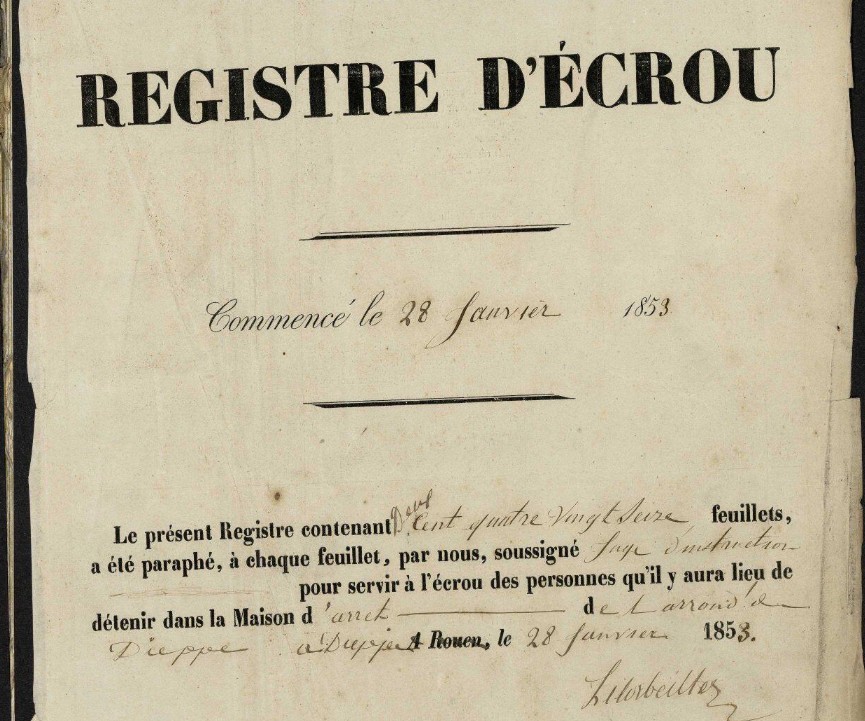 REGISTRE D'ÉCROU
Commencé le 28 Janvier 1853
Deux
Le présent Registre contenant Cent quatre Vingt Seize feuillets,
a été paraphé, à chaque feuillet, par nous, soussigné Juge d'instruction
pour servir à l'écrou des personnes qu'il y aura lieu de
détenir dans la Maison d'arret de l'arrond de
Dieppe à Dieppe A Rouen, le 28 Janvier 1853.